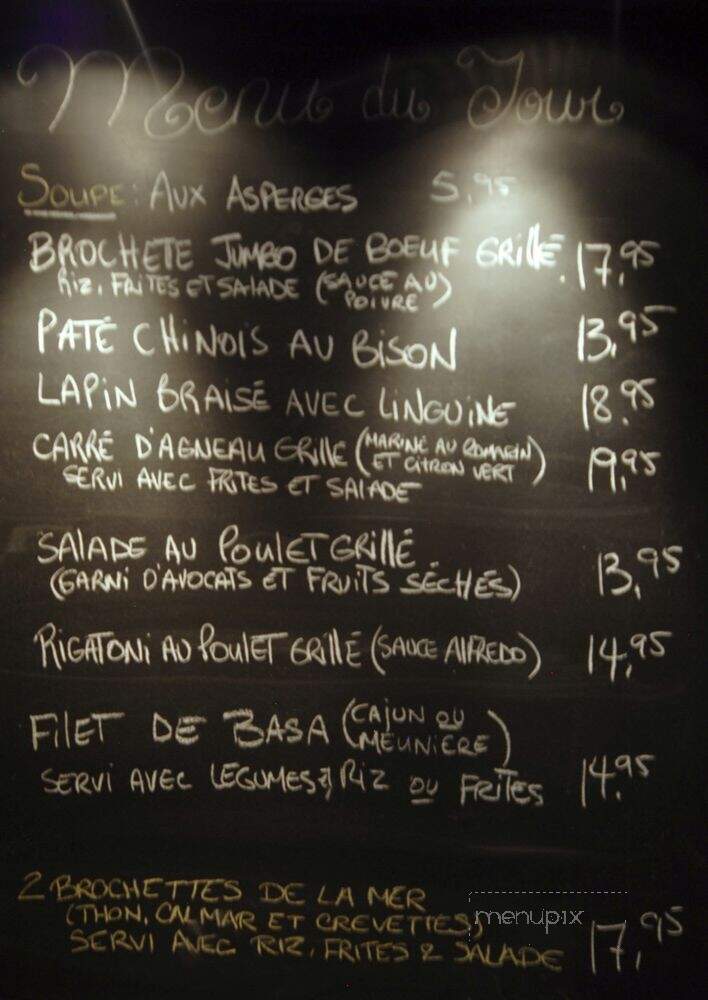 Menu du Jour
SOUPE: AUX ASPERGES 5,95
BROCHETE JUMBO DE BOEUF GRILLÉ 17,95
RIZ, FRITES ET SALADE (SAUCE AU
POIVRE)
PATÉ CHINOIS AU BISON 13,95
LAPIN BRAISÉ AVEC LINGUINE 18,95
CARRÉ D'AGNEAU GRILLE (MARINÉ AU ROMARIN 19,95
ET CITRON VERT)
SERVI AVEC FRITES ET SALADE
SALADE AU POULET GRILLÉ
(GARNI D'AVOCATS ET FRUITS SÉCHÉS) 13,95
RIGATONI AU POULET GRILLÉ (SAUCE ALFREDO) 14,95
FILET DE BASA (CAJUN OU
MEUNIÈRE)
SERVI AVEC LEGUMES & RIZ OU FRITES 14,95
2 BROCHETTES DE LA MER
(THON, CALMAR ET CREVETTES)
menupix
SERVI AVEC RIZ, FRITES & SALADE 17,95